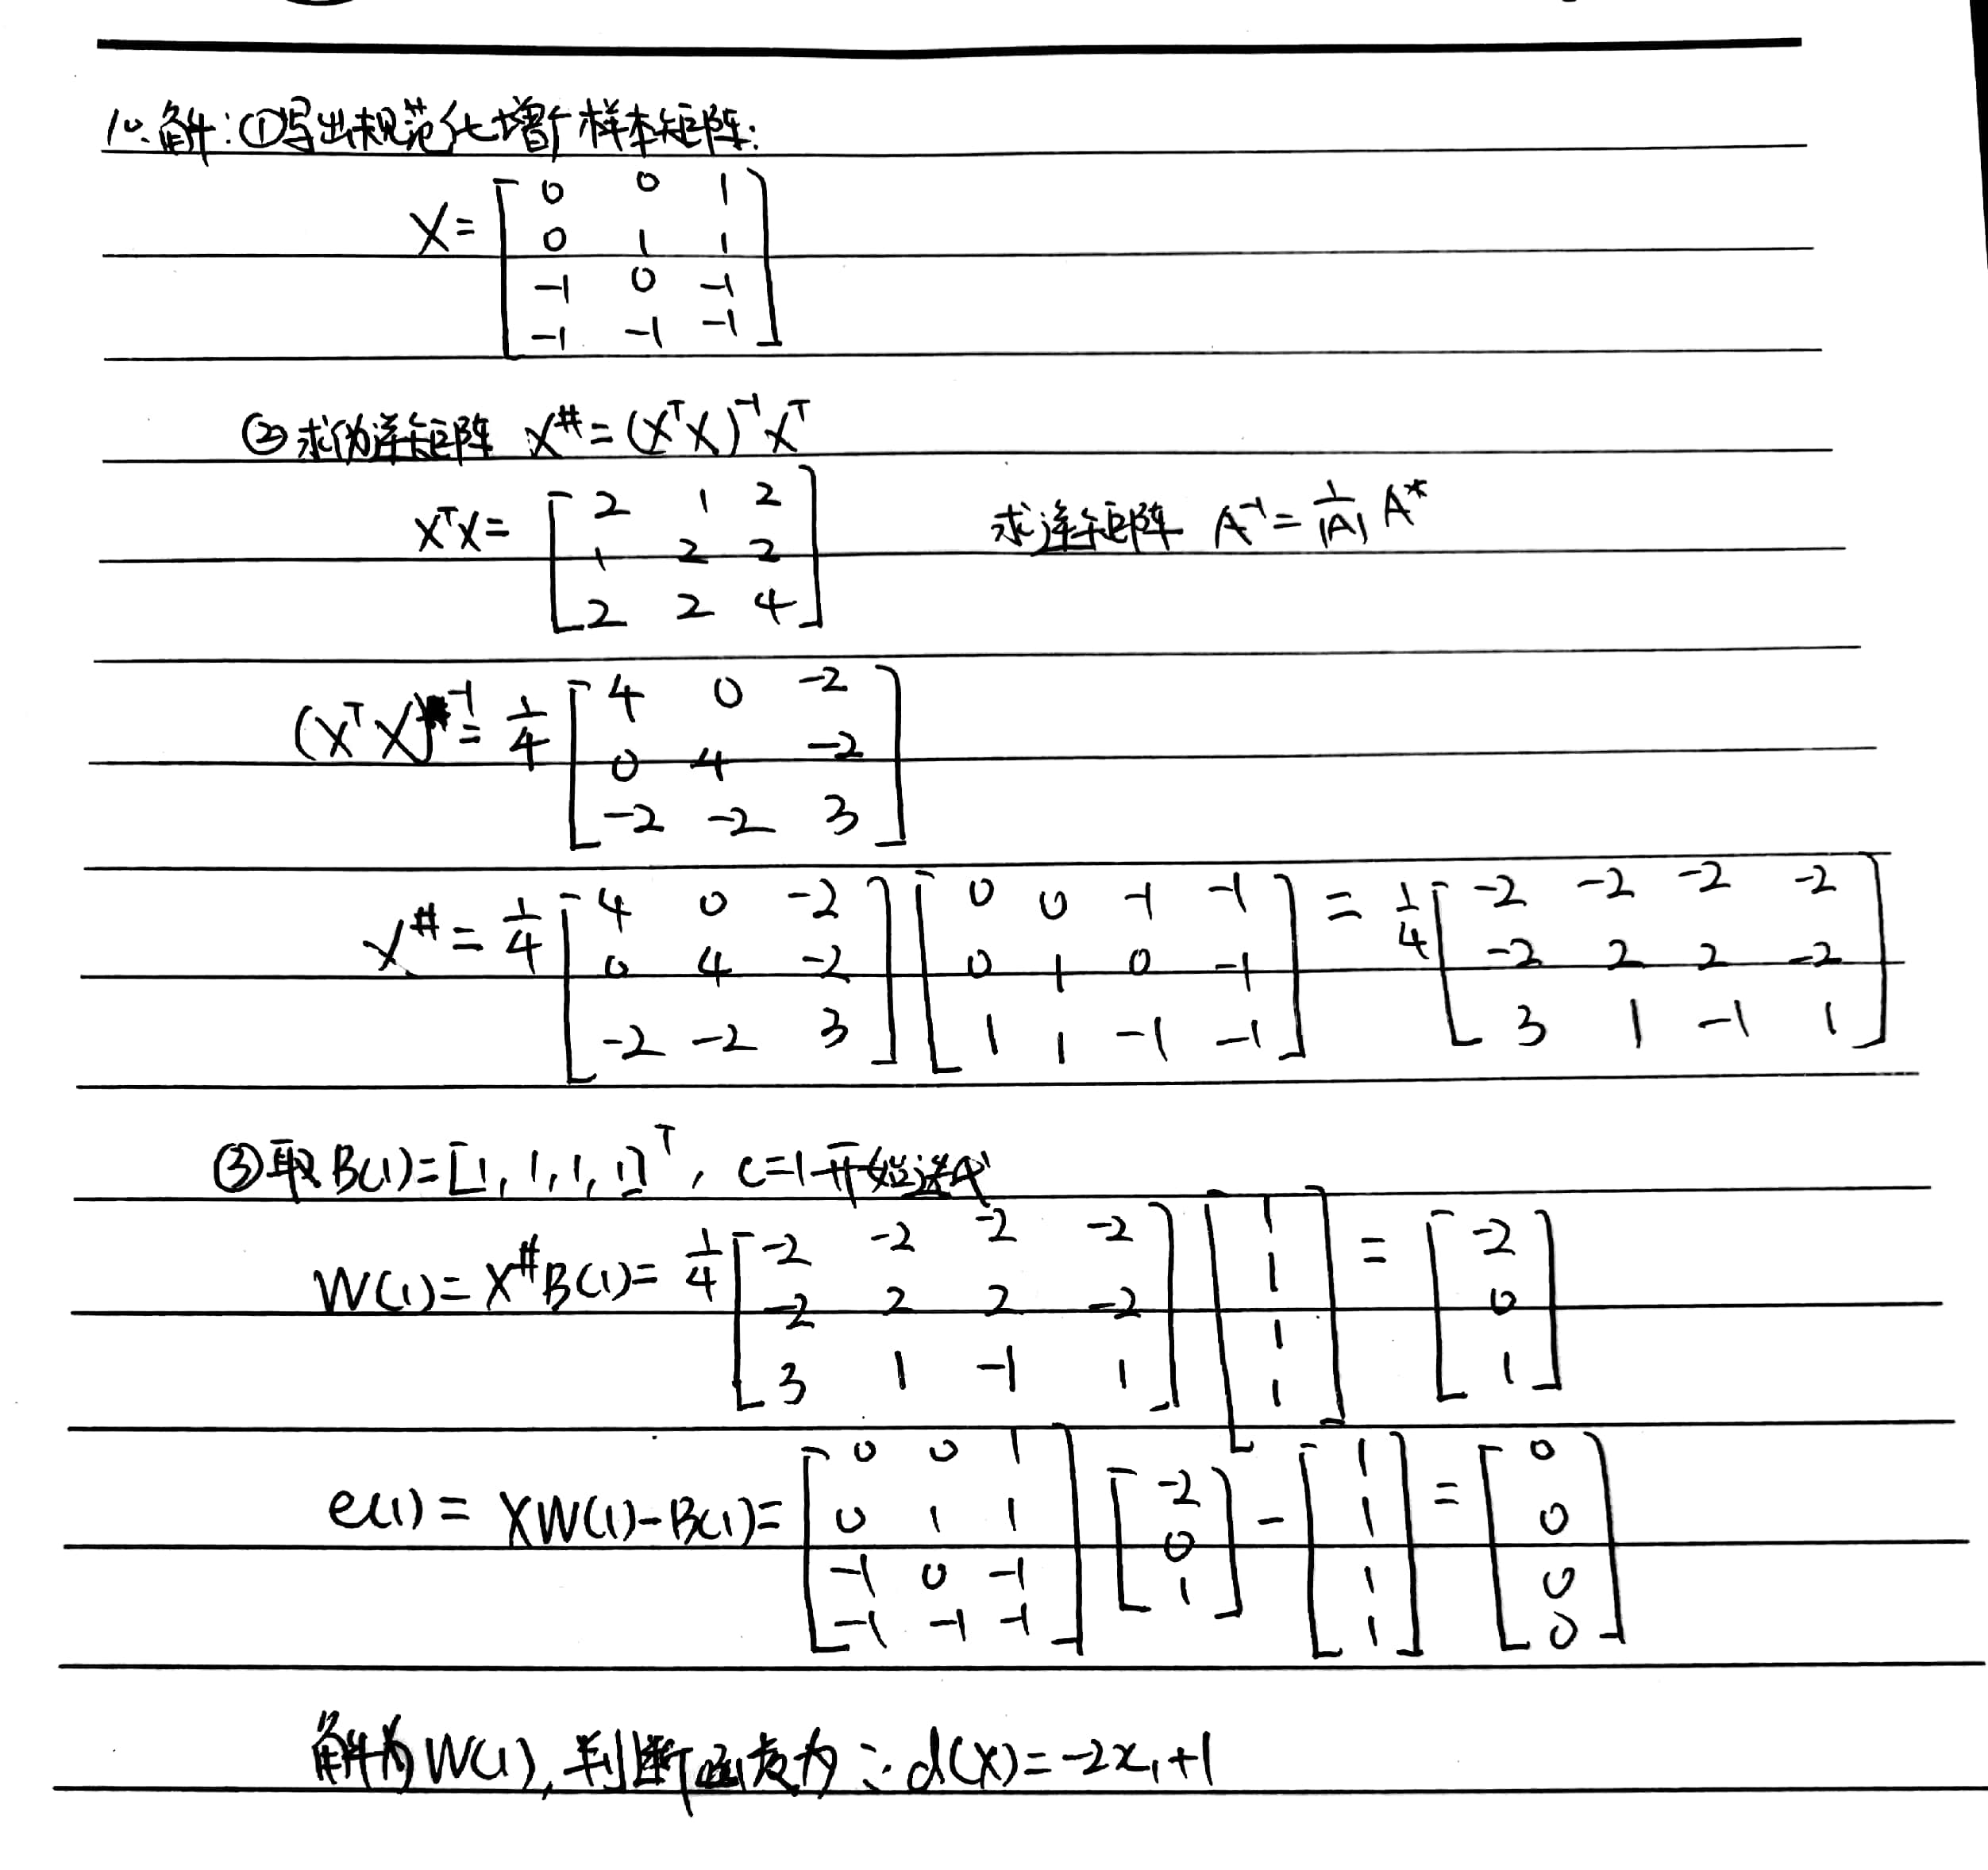 10.解:①写出规范化增广样本矩阵:
X= [ 0 0 1
0 1 1
-1 0 -1
-1 -1 -1 ]
②求伪逆矩阵 X^# = (X^T X)^-1 X^T
X^T X = [ 2 1 2
1 2 2
2 2 4 ] 求逆矩阵 A^-1 = 1/|A| A*
(X^T X)^-1 = 1/4 [ 4 0 -2
0 4 -2
-2 -2 3 ]
X^# = 1/4 [ 4 0 -2 ] [ 0 0 -1 -1 ] = 1/4 [ -2 -2 -2 -2 ]
[ 0 4 -2 ] [ 0 1 0 -1 ] [ -2 2 2 -2 ]
[ -2 -2 3 ] [ 1 1 -1 -1 ] [ 3 1 -1 1 ]
③取B(1)=[1,1,1,1]^T, c=1开始迭代
W(1)=X^# B(1)= 1/4 [ -2 -2 -2 -2 ] [ 1 ] = [ -2 ]
[ -2 2 2 -2 ] [ 1 ] [ 0 ]
[ 3 1 -1 1 ] [ 1 ] [ 1 ]
[ 1 ]
e(1) = XW(1)-B(1)= [ 0 0 1 ] [ -2 ] - [ 1 ] = [ 0 ]
[ 0 1 1 ] [ 0 ] [ 1 ] [ 0 ]
[ -1 0 -1 ] [ 1 ] [ 1 ] [ 0 ]
[ -1 -1 -1 ] [ 1 ] [ 0 ]
解为W(1),判断函数为:d(X)=-2x₁+1